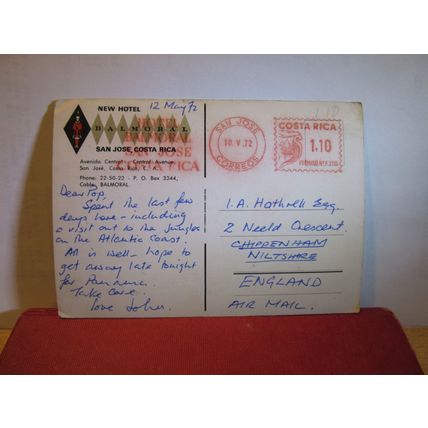 NEW HOTEL
BALMORAL
SAN JOSE, COSTA RICA
Avenida Central - Central Avenue
San José, Costa Rica, C. A.
Phone: 22-50-22 - P. O. Box 3344,
Cable: BALMORAL
12 May 72
HOTEL
BALMORAL
SAN JOSE
COSTA RICA
SAN JOSE
10.V.72
CORREOS
COSTA RICA
1.10
Dear Pop,
Spent the last few
days here - including
a visit out to the jungles
on the Atlantic Coast.
All is well - hope to
get away late tonight
for Panama.
Take Care.
love John.
I.A. Hothrell Esq.
2 Neeld Crescent,
CHIPPENHAM
WILTSHIRE
ENGLAND
AIR MAIL.